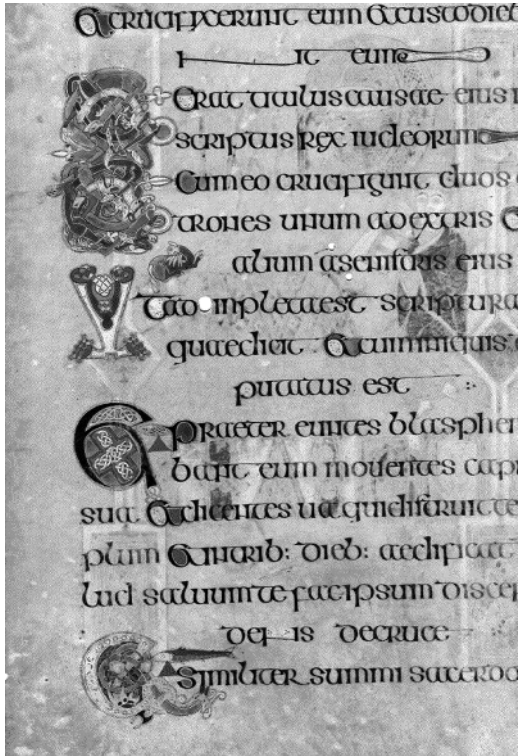 & crucifixerunt eum & custodie
eum
Et erat titulus causae eius i
scriptus rex iudeorum
Et cum eo crucifigunt duos
atrones unum a dextris &
alium a senistris eius
Ut adinpleta est scriptura
quae dicit & cum iniquis
putatus est
Et praeter euntes blasphe
bant eum mouentes capi
sua & dicentes ua qui distruit te
plum & in trib: dieb: aedificat
lud saluum te fac ipsum discen
dens decruce
similiter summi sacerdo